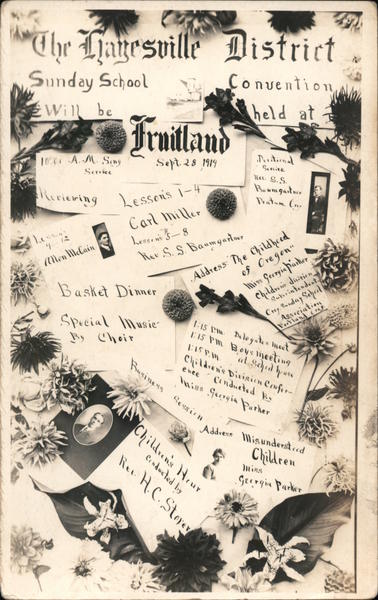 The Hayesville District
Sunday School Convention
Will be held at
Fruitland
Sept. 28 1919
10:00 A.M. Song
Service
Devotional
Service
Rev. S. S.
Baumgartner
Reviewing Lessons 1-4
Carl Miller
Lessons 5-8
Rev S. S Baumgartner
Lessons
9-12
Allen McCain
Address "The Childhood
of Oregon"
Miss Georgia Parker
Children's division
Superintendent
Sunday School
Association
Basket Dinner
Special Music
By Choir
1:15 P.M. Delegates meet
1:15 P.M. Boys meeting
1:15 P.M. School house
Children's Division Confer-
ence Conducted By
Miss Georgia Parker
Business Session
Address Misunderstood
Children
Miss
Georgia Parker
Children's Hour
Conducted by
Rev. H. C. Stover